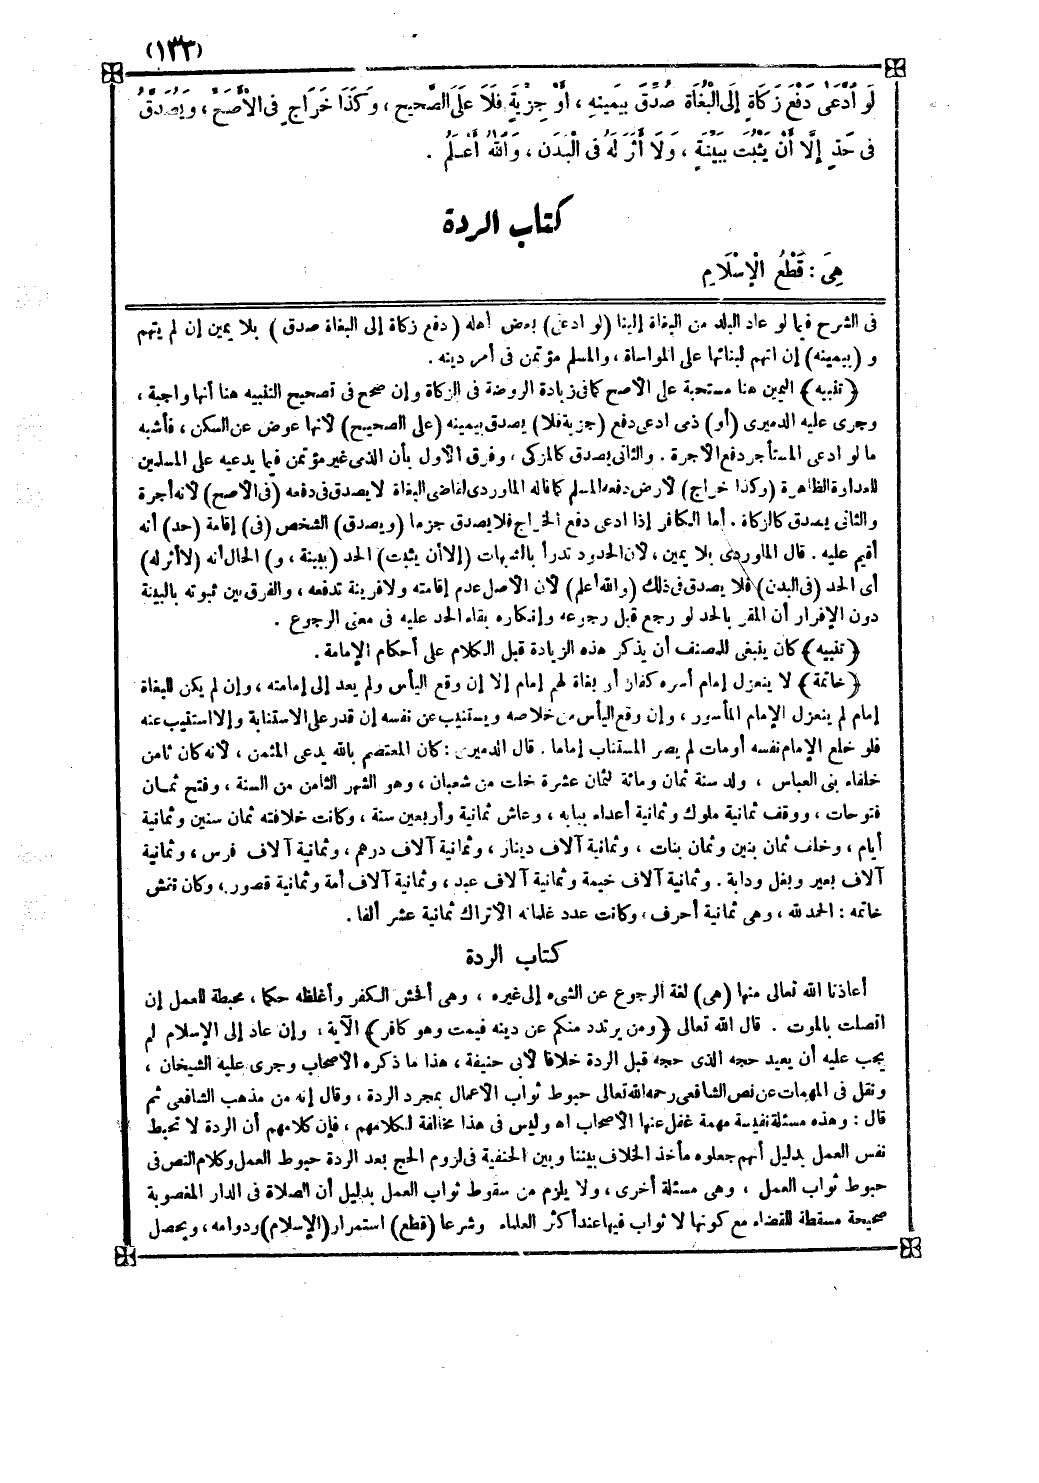 (١٣٣)
لَوِ ٱدَّعَىٰ دَفْعَ زَكَاةٍ إِلَى الْبُغَاةِ صُدِّقَ بِيَمِينِهِ ، أَوْ جِزْيَةٍ فَلَا عَلَى الصَّحِيحِ ، وَكَذَا خَرَاجٍ فِى الْأَصَحِّ ، وَيُصَدَّقُ
فِى حَدٍّ إِلَّا أَنْ يَثْبُتَ بِبَيِّنَةٍ ، وَلَا أَثَرَ لَهُ فِى الْبَدَنِ ، وَٱللّٰهُ أَعْلَمُ .
كتاب الردة
هِىَ : قَطْعُ الْإِسْلَامِ
فى الشرح فيما لو عاد البلد من البغاة إلينا (لو ادعى) بعض أهله (دفع زكاة إلى البغاة صدق) بلا يمين إن لم يتهم
و (بيمينه) إن اتهم لبنائها على المواساة ، والمسلم مؤتمن فى أمر دينه .
﴿تنبيه﴾ اليمين هنا مستحبة على الأصح كما فى زيادة الروضة فى الزكاة وإن صحح فى تصحيح التنبيه هنا أنها واجبة ،
وجرى عليه الدميرى (أو) ذمى ادعى دفع (جزية فلا) يصدق بيمينه (على الصحيح) لأنها عوض عن السكن ، فأشبه
ما لو ادعى المستأجر دفع الأجرة . والثانى يصدق كالمزكى ، وفرق الأول بأن الذمى غير مؤتمن فيما يدعيه على المسلمين
للعداوة الظاهرة (وكذا خراج) لأرض دفعه المسلم كما قاله الماوردى لقاضى البغاة لا يصدق فى دفعه (فى الأصح) لأنه أجرة
والثانى يصدق كالزكاة . أما الكافر إذا ادعى دفع الخراج فلا يصدق جزما (ويصدق) الشخص (فى) إقامة (حد) أنه
أقيم عليه . قال الماوردى بلا يمين ، لأن الحدود تدرأ بالشبهات (إلا أن يثبت) الحد (ببينة ، و) الحال أنه (لا أثر له)
أى الحد (فى البدن) فلا يصدق فى ذلك (والله أعلم) لأن الأصل عدم إقامته ولا قرينة تدفعه ، والفرق بين ثبوته بالبينة
دون الإقرار أن المقر بالحد لو رجع قبل رجوعه وإنكاره بقاء الحد عليه فى معنى الرجوع .
﴿تنبيه﴾ كان ينبغى للمصنف أن يذكر هذه الزيادة قبل الكلام على أحكام الإمامة .
﴿خاتمة﴾ لا ينعزل إمام أسره كفار أو بغاة لهم إمام إلا إن وقع اليأس ولم يعد إلى إمامته ، وإن لم يكن للبغاة
إمام لم ينعزل الإمام المأسور ، وإن وقع اليأس من خلاصه ويستنيب عن نفسه إن قدر على الاستنابة وإلا استنيب عنه
فلو خلع الإمام نفسه أو مات لم يصر المستناب إماما . قال الدميرى : كان المعتصم بالله يدعى المثمن ، لأنه كان ثامن
خلفاء بنى العباس ، ولد سنة ثمان ومائة لثمان عشرة خلت من شعبان ، وهو الشهر الثامن من السنة ، وفتح ثمان
فتوحات ، ووقف ثمانية ملوك وثمانية أعداء ببابه ، وعاش ثمانية وأربعين سنة ، وكانت خلافته ثمان سنين وثمانية
أيام ، وخلف ثمان بنين وثمان بنات ، وثمانية آلاف دينار ، وثمانية آلاف درهم ، وثمانية آلاف فرس ، وثمانية
آلاف بعير وبغل ودابة . وثمانية آلاف خيمة وثمانية آلاف عبد ، وثمانية آلاف أمة وثمانية قصور ، وكان نقش
خاتمه : الحمد لله ، وهى ثمانية أحرف ، وكانت عدد غلمانه الأتراك ثمانية عشر ألفا .
كتاب الردة
أعاذنا الله تعالى منها (هى) لغة الرجوع عن الشىء إلى غيره ، وهى أفحش الكفر وأغلظه حكما ، محبطة للعمل إن
اتصلت بالموت . قال الله تعالى ﴿ومن يرتدد منكم عن دينه فيمت وهو كافر﴾ الآية ، وإن عاد إلى الإسلام لم
يجب عليه أن يعيد حجه الذى حجه قبل الردة خلافا لأبى حنيفة ، هذا ما ذكره الأصحاب وجرى عليه الشيخان ،
ونقل فى المهمات عن نص الشافعى رحمه الله تعالى حبوط ثواب الأعمال بمجرد الردة ، وقال إنه من مذهب الشافعى ثم
قال : وهذه مسئلة نفيسة مهمة غفل عنها الأصحاب اه وليس فى هذا مخالفة لكلامهم ، فإن كلامهم أن الردة لا تحبط
نفس العمل بدليل أنهم جعلوه مأخذ الخلاف بيننا وبين الحنفية فى لزوم الحج بعد الردة حبوط العمل وكلام النص فى
حبوط ثواب العمل ، وهى مسئلة أخرى ، ولا يلزم من سقوط ثواب العمل بدليل أن الصلاة فى الدار المغصوبة
صحيحة مسقطة للقضاء مع كونها لا ثواب فيها عند أكثر العلماء وشرعا (قطع) استمرار (الإسلام) ودوامه ، ويحصل